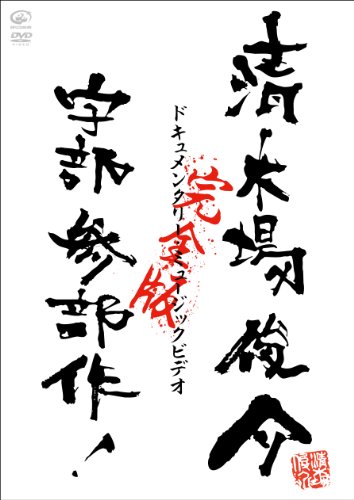 清木場俊介
ドキュメンタリー・ミュージックビデオ
完全版
宇部参部作！
DVD
VIDEO